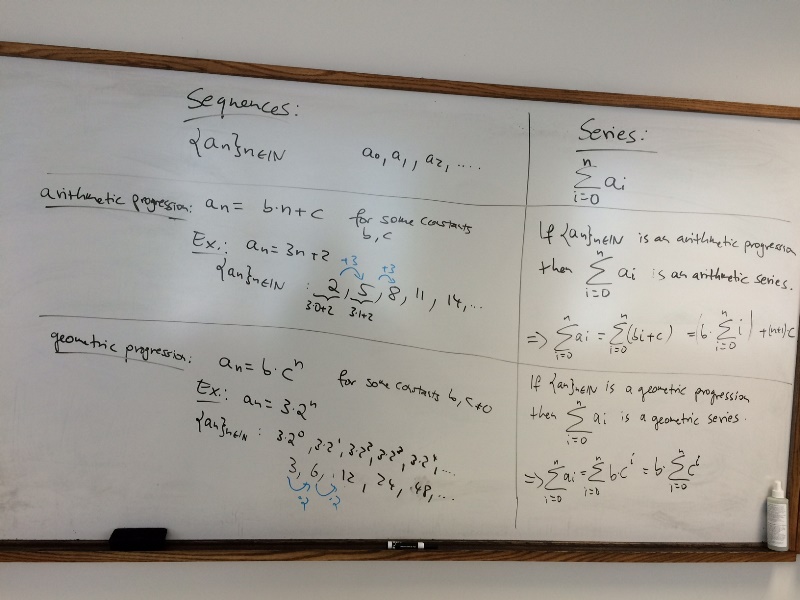 Sequences:
{an}n∈ℕ    a0, a1, a2, ....
arithmetic progression: an = b·n+c    for some constants
b, c
Ex.: an = 3n+2
+3 +3
{an}n∈ℕ : 2, 5, 8, 11, 14, ...
3·0+2 3·1+2
geometric progression: an = b·c^n    for some constants b, c≠0
Ex.: an = 3·2^n
{an}n∈ℕ : 3·2^0, 3·2^1, 3·2^2, 3·2^3, 3·2^4, ....
3, 6, 12, 24, 48, ...
·2 ·2
Series:
∑_{i=0}^{n} ai
If {an}n∈ℕ is an arithmetic progression
then ∑_{i=0}^{n} ai is an arithmetic series.
=> ∑_{i=0}^{n} ai = ∑_{i=0}^{n} (bi+c) = (b·∑_{i=0}^{n} i) + (n+1)·c
If {an}n∈ℕ is a geometric progression
then ∑_{i=0}^{n} ai is a geometric series.
=> ∑_{i=0}^{n} ai = ∑_{i=0}^{n} b·c^i = b·∑_{i=0}^{n} c^i